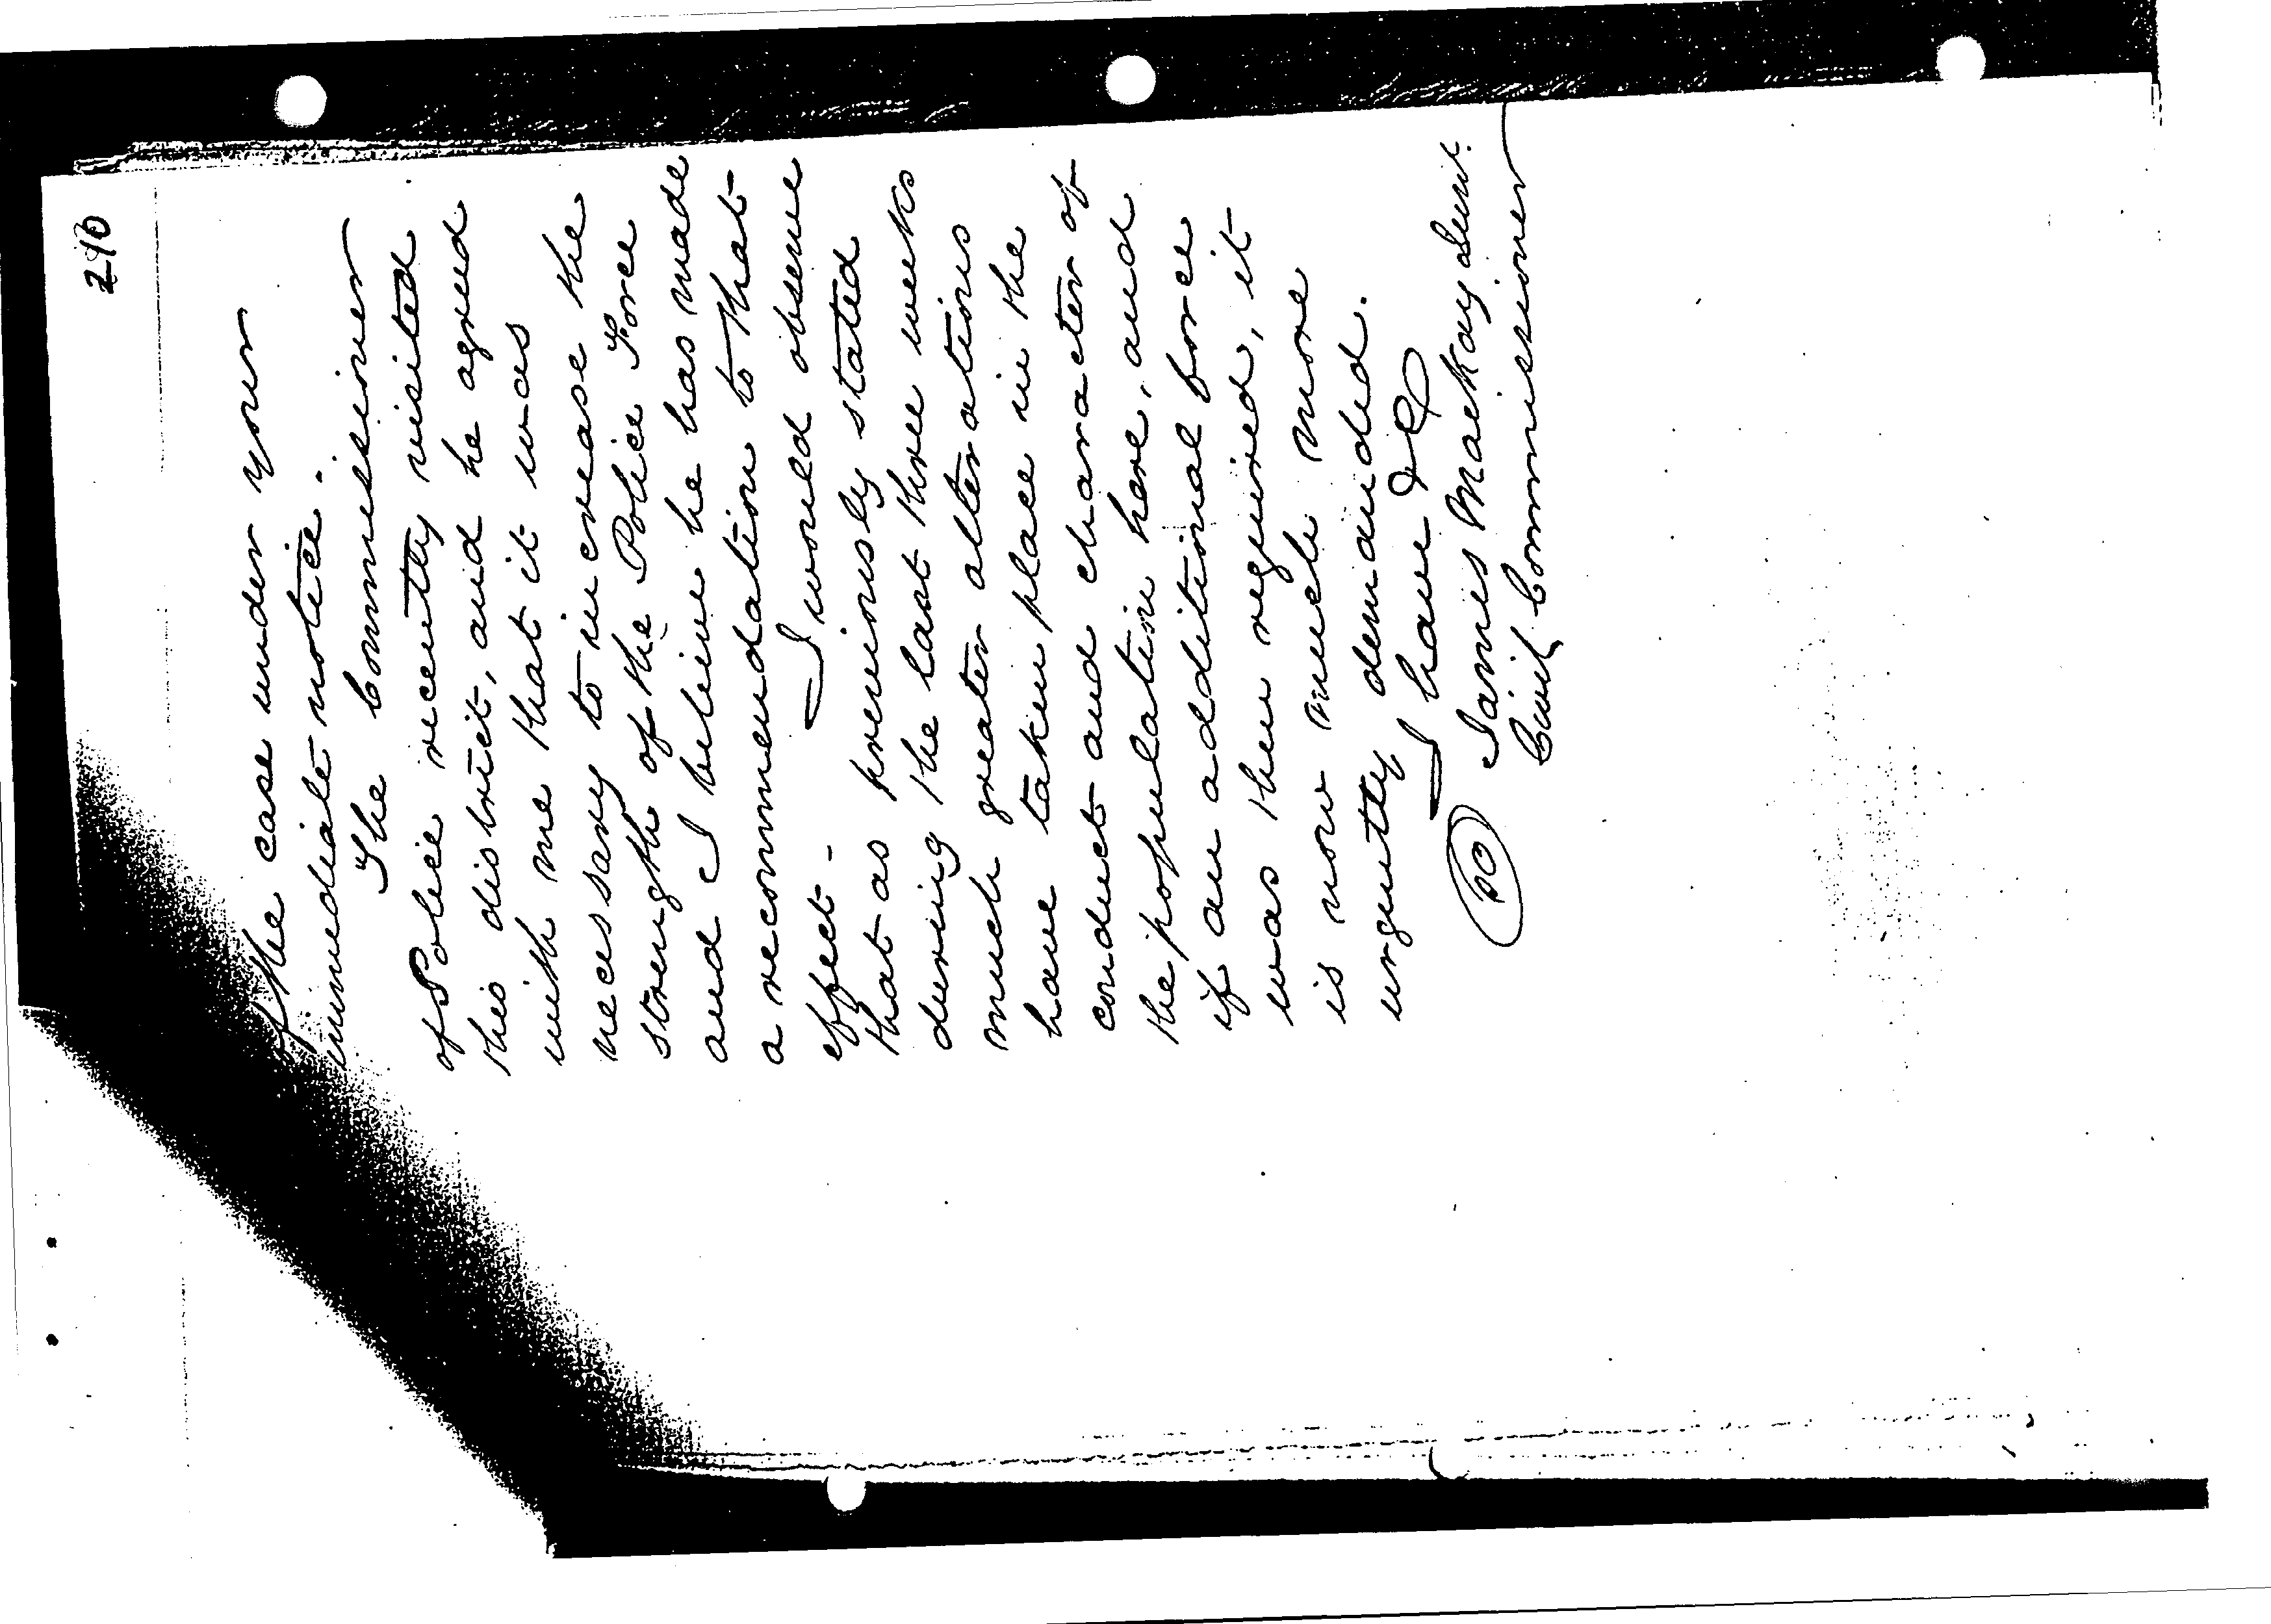 210
of the case under your
immediate notice.
The Commissioner
of Police recently visited
this district, and he agreed
with me that it was
necessary to increase the
strength of the Police Force
and I believe he has made
a recommendation to that
effect - I would observe
that as previously stated
during the last three weeks
much greater alterations
have taken place in the
conduct and character of
the population here, and
if an additional force
was then required, it
is now much more
urgently demanded.
I have &c
James MacKay Lieut.
Civil Commissioner